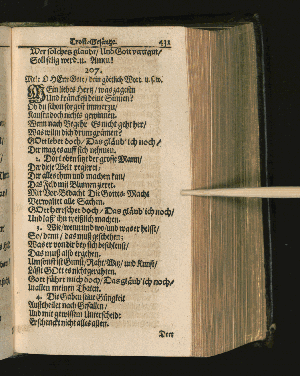 Trost-Gesänge. 431
Wer solches glaubt/ Und Gott vertraut/
Soll selig werden. Amen!
207.
Mel: O HErr Gott/ dein göttlich Wort. u.s.w.
MEin liebes Hertz/ was zagest du
Und kränckest deine Sinnen?
Ob du schon sorgest immerzu/
Kanst du doch nichts gewinnen.
Wenn nach Begehr Es nicht geht her/
Was wilst dich drum grämen?
GOtt lebet doch/ Das gläub' ich noch/
Der mag es auff sich nehmen.
2. Dort oben sitzt der grosse Mann/
Der diese Welt regieret/
Der alles thun und machen kan/
Das Feld mit Blumen zieret.
Mit Vor-Bedacht Die Gottes-Macht
Verwaltet alle Sachen.
GOtt herrschet doch/ Das gläub' ich noch/
Und laß' ihn weißlich machen.
3. Wie/ wenn und wo/ und was er heißt/
So/ denn/ das muß geschehen:
Was er von dir bey sich beschleust/
Das muß also ergehen.
Umsonst ist Gunst/ Raht/ Witz/ und Kunst/
Läßt GOtt es nicht gerahten.
Gott führt mich doch/ Das gläub' ich noch/
In allen meinen Thaten.
4. Die Gaben seiner Gütigkeit
Austheilet nach Gefallen/
Und mit gewissem Unterscheid:
Er schencket nicht alles allen.
Der